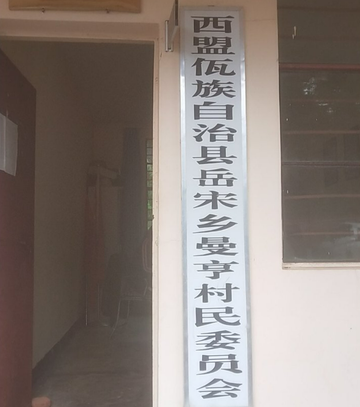 西盟佤族自治县岳宋乡曼亨村民委员会